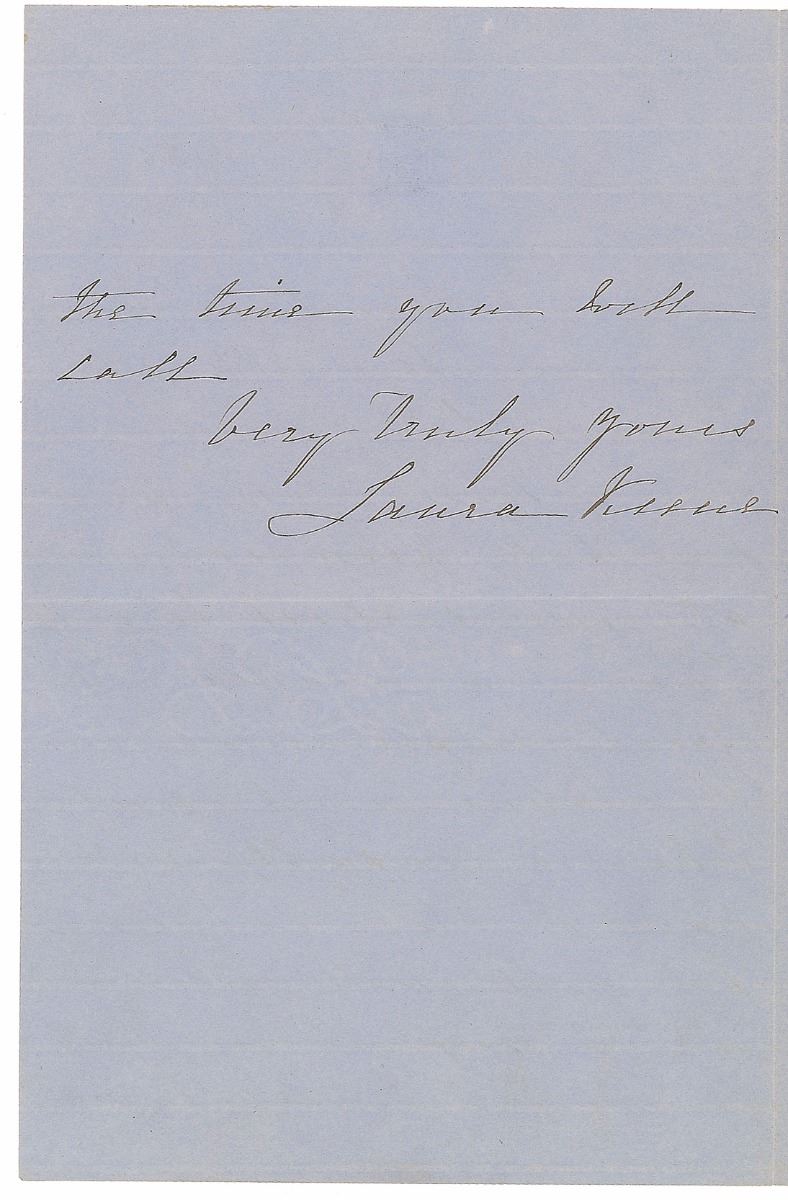 the time you will
call
Very Truly yours
Laura Keene